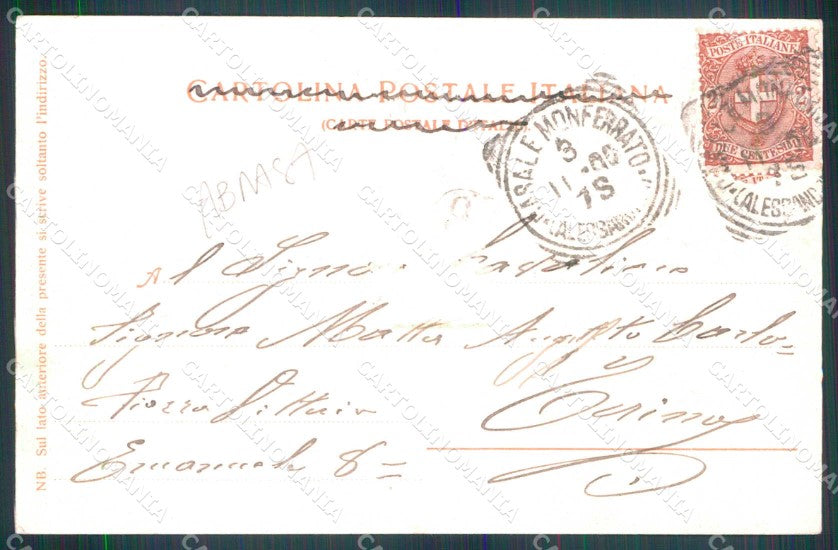 CARTOLINA POSTALE ITALIANA
(CARTE POSTALE D'ITALIE)
POSTE ITALIANE
DUE CENTESIMI
CASALE MONFERRATO
3
11.00
7S
(ALESSANDRIA)
(ALESSANDRIA)
A
Al Signor Cavaliere
Signore Motta Augusto Carlo=
Piazza Vittorio
Torino
Emanuele 8=
NB. Sul lato anteriore della presente si scrive soltanto l'indirizzo.
CARTOLINOMANIA